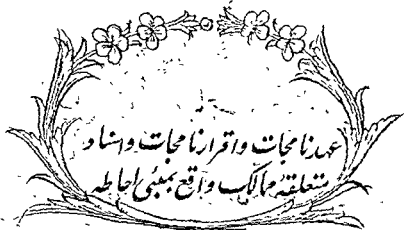 عہدنامجات و اقرارنامجات و اسناد
متعلقہ ممالک واقع بمبئی احاطہ